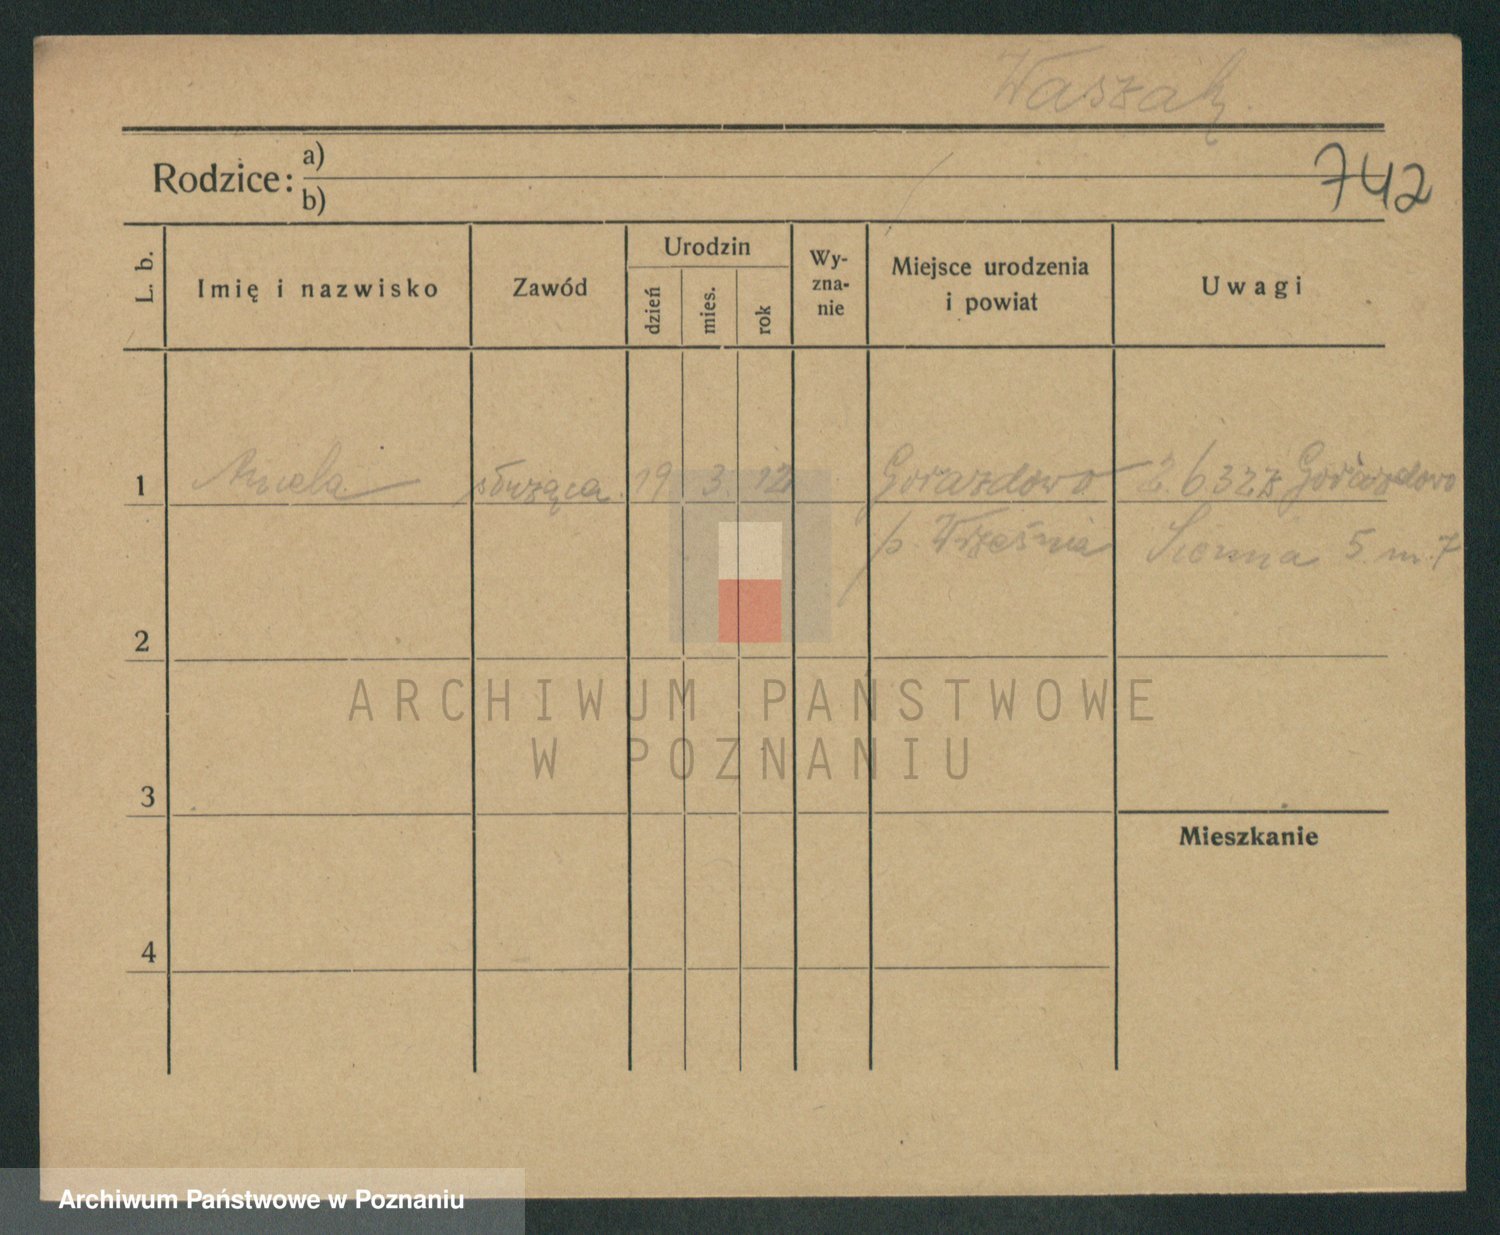 Waszak
742
Rodzice: a)
b)
L. b.
Imię i nazwisko
Zawód
Urodzin
dzień
mies.
rok
Wy-
zna-
nie
Miejsce urodzenia
i powiat
Uwagi
1 Aniela służąca 19 3. 12 Gorazdowo 2.6.32 z Gorazdowo
p. Września Sienna 5 m. 7
2
3
4
Mieszkanie
ARCHIWUM PAŃSTWOWE
W POZNANIU
Archiwum Państwowe w Poznaniu